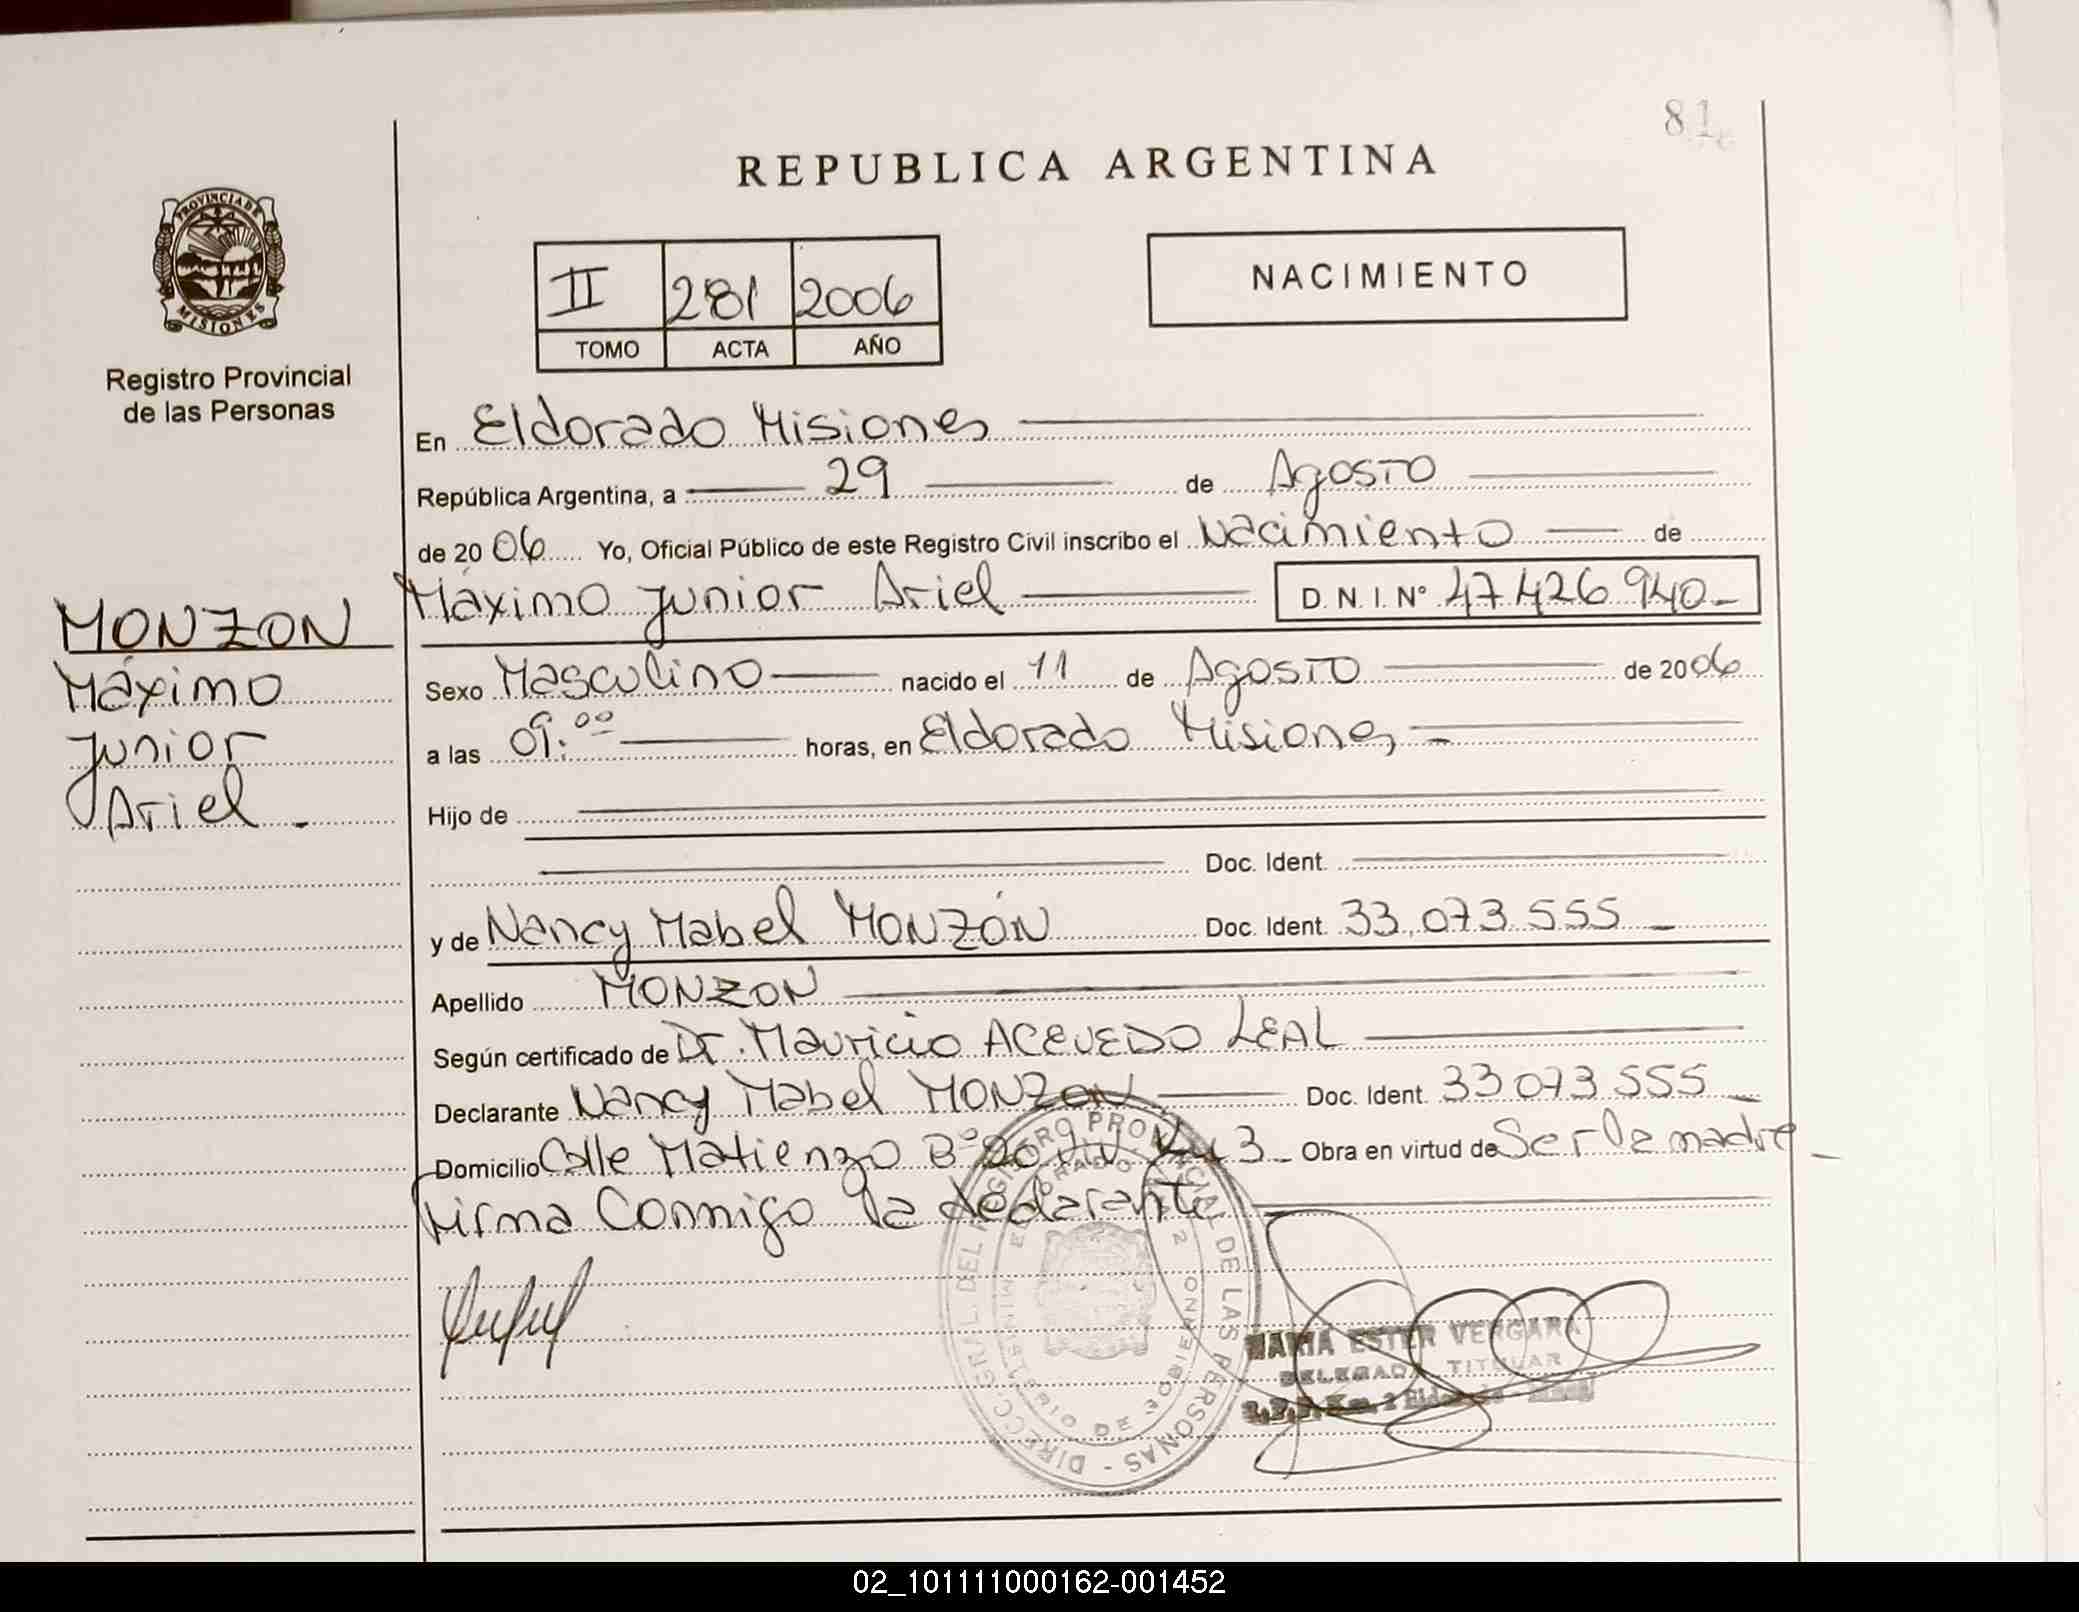 81
REPUBLICA ARGENTINA
PROVINCIA DE
MISIONES
Registro Provincial
de las Personas
II 281 2006
TOMO ACTA AÑO
NACIMIENTO
En Eldorado Misiones
República Argentina, a 29 de Agosto
de 2006 Yo, Oficial Público de este Registro Civil inscribo el Nacimiento de
Máximo Junior Ariel D. N. I. Nº 47 426 940-
MONZON
Máximo
Junior
Ariel.-
Sexo Masculino nacido el 11 de Agosto de 2006
a las 09:00 horas, en Eldorado Misiones-
Hijo de
Doc. Ident.
y de Nancy Mabel MONZÓN Doc. Ident. 33.073.555-
Apellido MONZON
Según certificado de Dr. Mauricio ACEVEDO LEAL
Declarante Nancy Mabel MONZON Doc. Ident. 33 073 555-
Domicilio Calle Matienzo Bº 3- Obra en virtud de Ser la madre-
Firma Conmigo la declarante
DIRECC. GRAL. DEL REGISTRO PROVINCIAL DE LAS PERSONAS -
MINISTERIO DE GOBIERNO
MARIA ESTER VERGARA
DELEGADA TITULAR
02_101111000162-001452